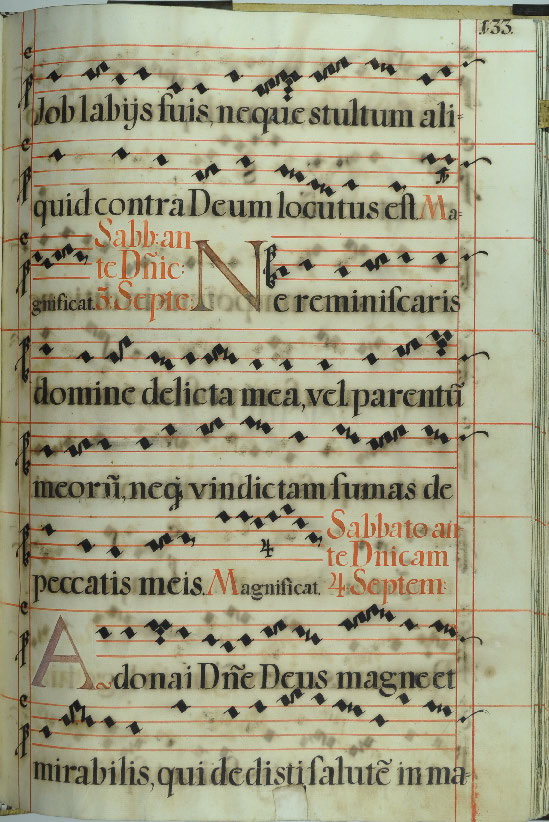 133.
Job labijs suis, neque stultum ali-
quid contra Deum locutus est Ma-
gnificat. Sabb: an
te Dñic:
3. Septe:
Ne reminiscaris
domine delicta mea, vel parentũ
meorũ, neq; vindictam sumas de
peccatis meis. Magnificat. 4
Sabbato an
te Dñicam
4. Septem:
Adonai Dñe Deus magne et
mirabilis, qui dedisti salutẽ in ma-